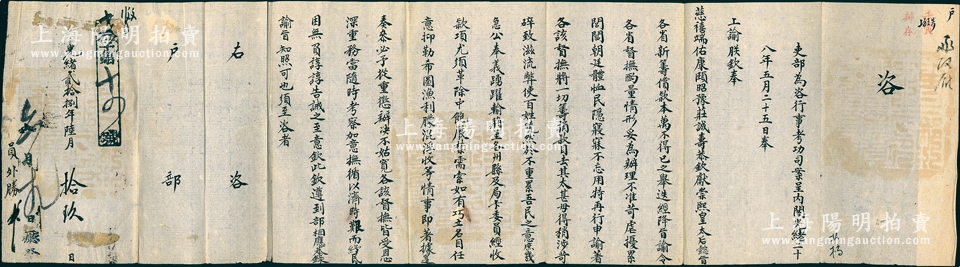 户
咨
吏部為咨行事考功司案呈內閣抄
光緒二十
八年五月二十五日奉
慈禧端佑康頤昭豫莊誠壽恭欽獻崇熙皇太后懿旨
上諭朕欽奉
各省新籌償款本萬不得已之舉迭經降旨諭令
各省督撫酌量情形妥為辦理不准苛虐擾累
閭閻朝廷體恤民隱寢寐不忘用特再行申諭著
各該督撫將一切籌捐款目去其太甚毋得稍涉苛
碎致滋流弊使百姓等
急公奉義踴躍輸將至州縣及局卡委員經收
款項尤須革除中飽嚴禁需索如有巧立名目任
意抑勒希圖漁利朦混浮收等情事即著據實
奏參必予從重懲辦決不姑寬各該督撫皆受恩
深重務當隨時考察加意撫循以濟時艱而紓民
困無負諄諄告誡之至意欽此欽遵到部相應恭錄
諭旨知照可也須至咨者
右咨
户部
光緒貳拾捌年陸月拾玖日
員外勝
收
陽明拍賣
www.